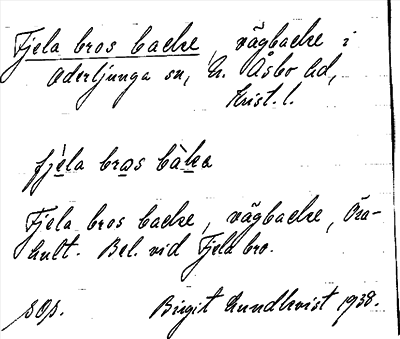 Fjela bros backe, vägbacke i
Oderljunga sn, N. Åsbo hd,
Krist. l.
fjela bros bàka
Fjela bros backe, vägbacke, Öra-
hult. Bel. vid Fjela bro.
sOs. Birgit Lundkvist 1938.